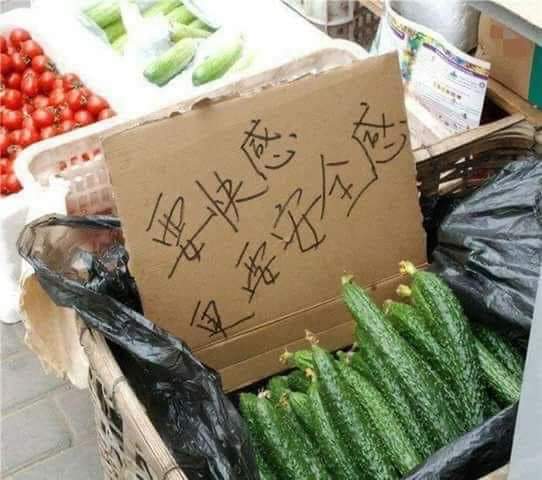 要快感
更要安全感